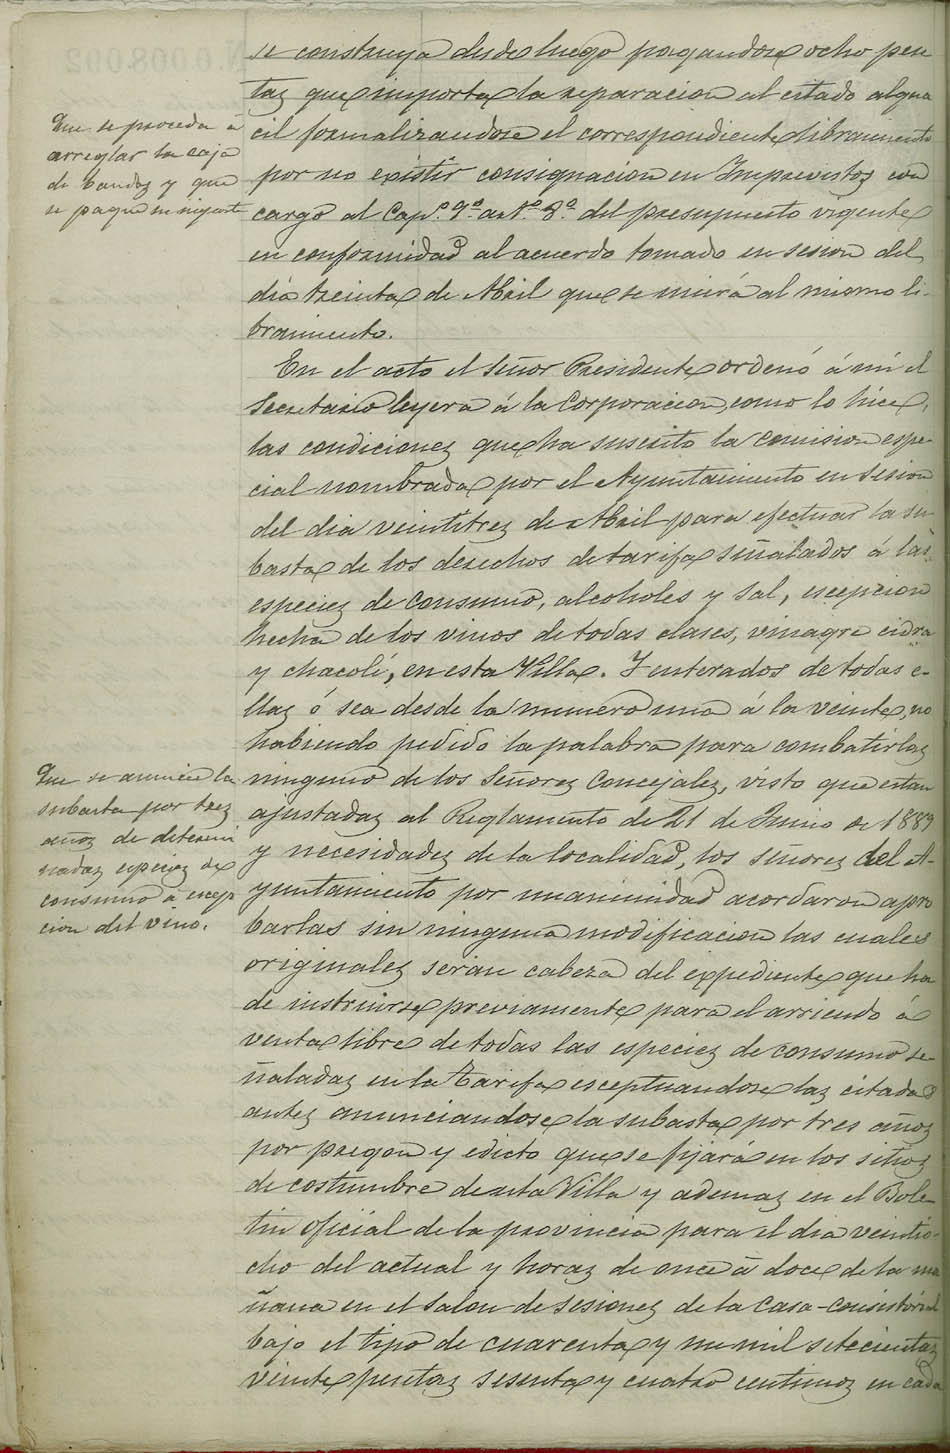 se construya desde luego pagandose ocho pese
tas que importa la reparacion al citado algua
cil formalizandose el correspondiente libramiento
por no existir consignacion en Imprevistos con
cargo al Capº. 9º art.º 8º. del presupuesto vigente
en conformidad al acuerdo tomado en sesion del
dia treinta de Abril que se unirá al mismo li-
bramiento.
Que se proceda á
arreglar la caja
de bandos y que
se pague su importe
En el acto el Señor Presidente ordenó á mi el
Secretario leyera á la Corporacion, como lo hice,
las condiciones que ha suscrito la comision espe-
cial nombrada por el Ayuntamiento en sesion
del dia veintitres de Abril para efectuar la su-
basta de los derechos de tarifa señalados á las
especies de consumo, alcoholes y sal, escepcion
hecha de los vinos de todas clases, vinagre cidra
y chacolí, en esta Villa. Y enterados de todas e-
llas ó sea desde la numero una á la veinte, no
habiendo pedido la palabra para combatirlas
ninguno de los Señores Concejales, visto que estan
ajustadas al Reglamento de 21 de Junio de 1889
y necesidades de la localidad, los Señores del A-
yuntamiento por unanimidad acordaron apro
barlas sin ninguna modificacion las cuales
originales serian cabeza del expediente que ha
de instruirse previamente para el arriendo á
venta libre de todas las especies de consumo se-
ñaladas en la tarifa esceptuandose las citadas
antes anunciandose la subasta por tres años
por pregon y edicto que se fijará en los sitios
de costumbre de esta Villa y ademas en el Bole-
tin oficial de la provincia para el dia veintio-
cho del actual y horas de once á doce de la ma
ñana en el salon de sesiones de la Casa-consistorial
bajo el tipo de cuarenta y un mil setecientas
veinte pesetas sesenta y cuatro centimos en cada
Que se anuncie la
subasta por tres
años de determi
nadas especies de
consumo á escep
cion del vino.